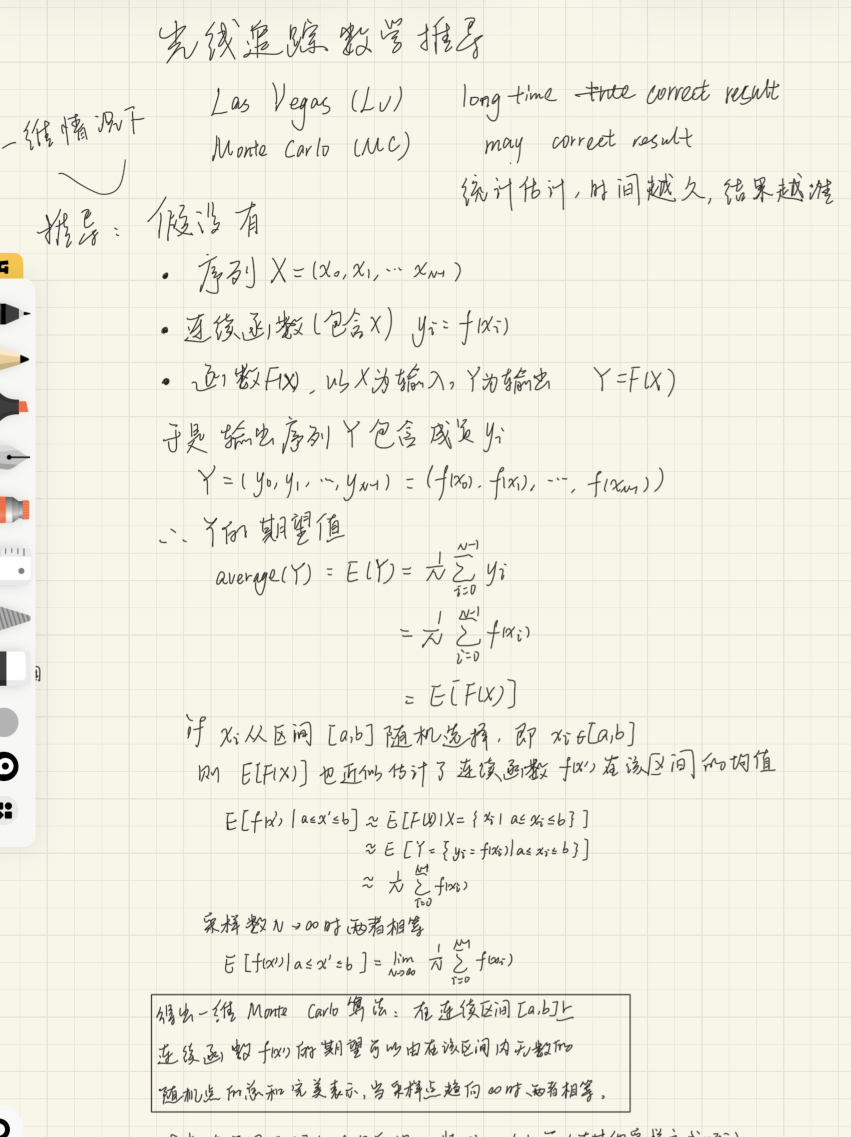 光线追踪数学推导
Las Vegas (LV) long time true correct result
一维情况下
Monte Carlo (MC) may correct result
统计估计，时间越久，结果越准
推导： 假设有
• 序列 X = (x₀, x₁, … x_N-1)
• 连续函数 (包含X) yᵢ = f(xᵢ)
• 函数F(X)，以X为输入，Y为输出 Y = F(X)
于是输出序列 Y 包含成员 yᵢ
Y = (y₀, y₁, …, y_N-1) = (f(x₀), f(x₁), …, f(x_N-1))
∴ Y的期望值
average(Y) = E(Y) = 1/N ∑_{i=0}^{N-1} yᵢ
= 1/N ∑_{i=0}^{N-1} f(xᵢ)
= E[F(X)]
if xᵢ 从区间 [a,b] 随机选择，即 xᵢ∈[a,b]
则 E[F(X)] 也近似估计了连续函数 f(x') 在该区间的均值
E[f(x') | a≤x'≤b] ≈ E[F(X) | X = {xᵢ | a≤xᵢ≤b}]
≈ E[Y = {yᵢ = f(xᵢ) | a≤xᵢ≤b}]
≈ 1/N ∑_{i=0}^{N-1} f(xᵢ)
采样数 N→∞时两者相等
E[f(x') | a≤x'≤b] = lim_{N→∞} 1/N ∑_{i=0}^{N-1} f(xᵢ)
得出一维 Monte Carlo 算法：在连续区间 [a,b]上
连续函数 f(x') 的期望可以由在该区间内无数的
随机点的总和完美表示，当采样点趋向∞时，两者相等。